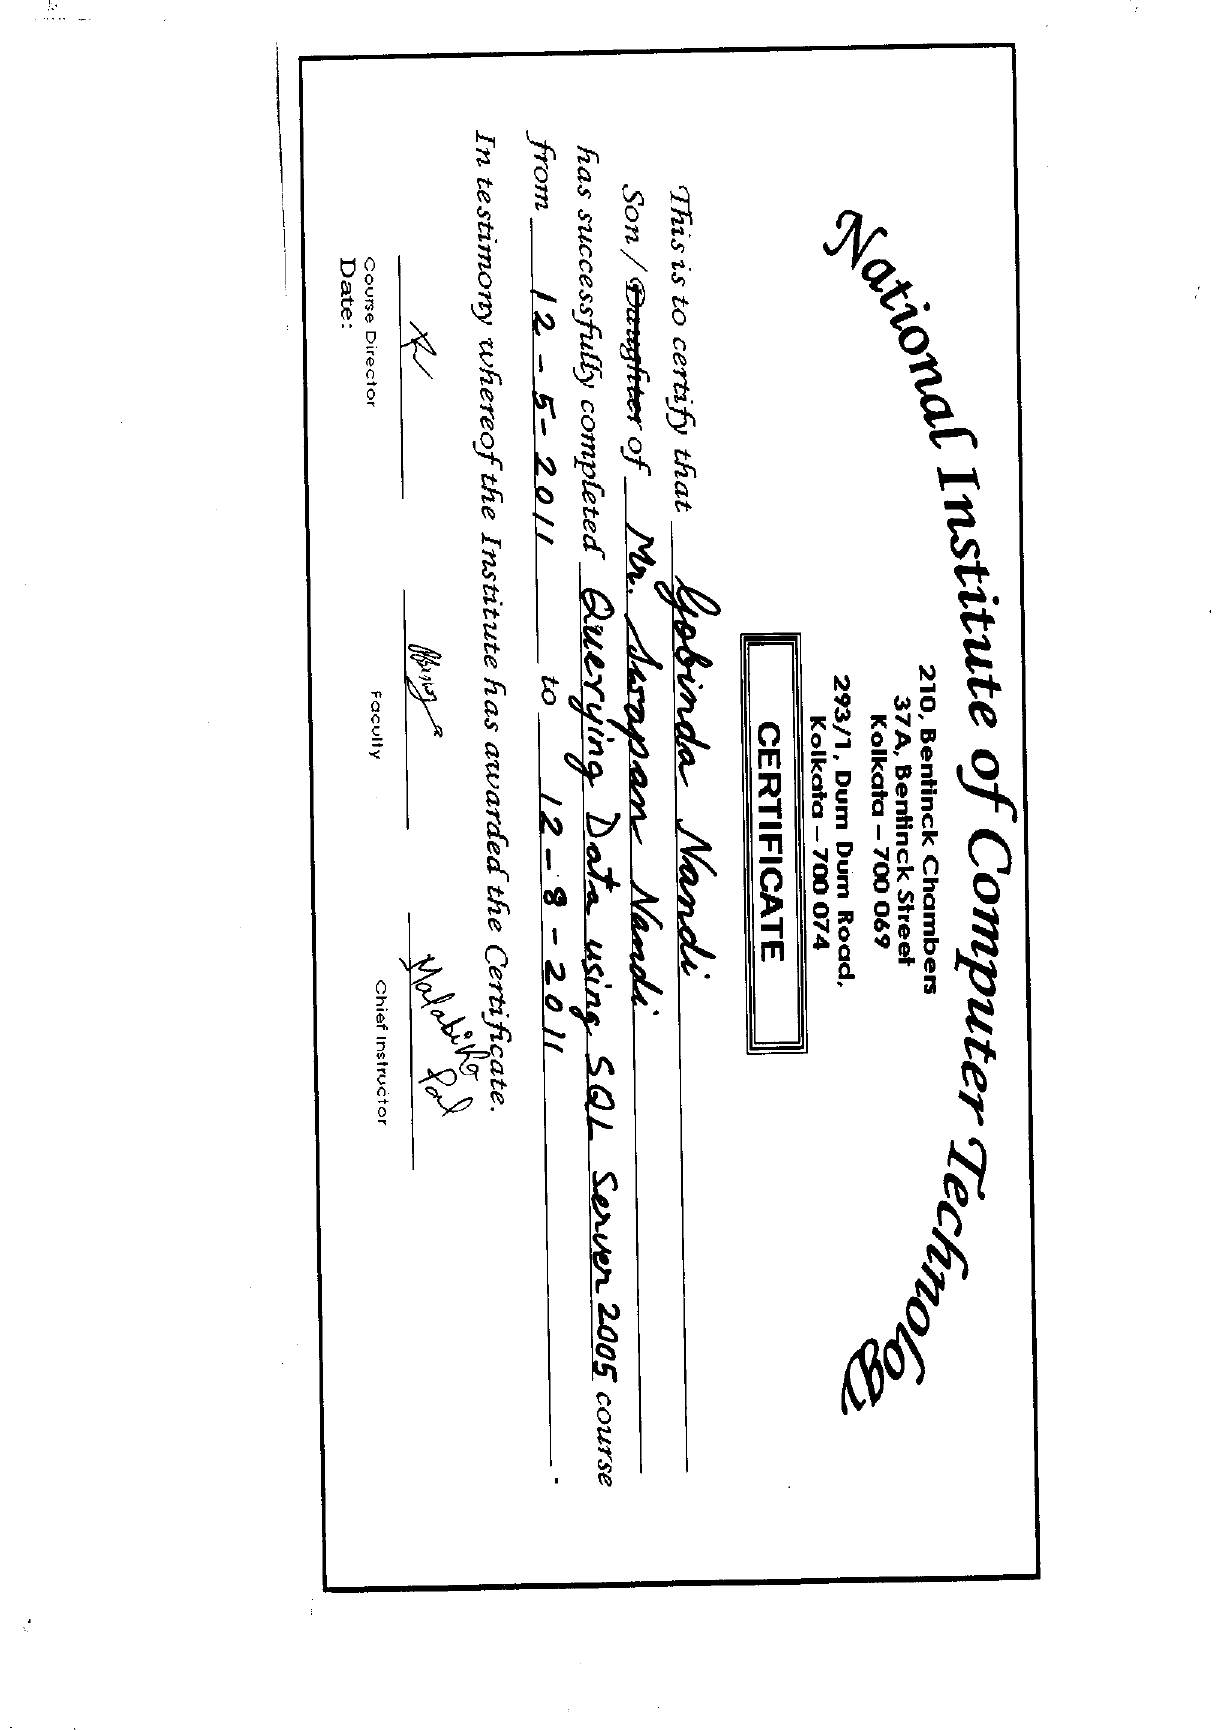 National Institute of Computer Technology
210, Bentinck Chambers
37A, Bentinck Street
Kolkata – 700 069
293/1, Dum Dum Road,
Kolkata – 700 074
CERTIFICATE
This is to certify that Gobinda Nandi
Son / Daughter of Mr. Swapan Nandi
has successfully completed Querying Data using SQL Server 2005 course
from 12-5-2011 to 12-8-2011.
In testimony whereof the Institute has awarded the Certificate.
Malabika Pal
Course Director Faculty Chief Instructor
Date: